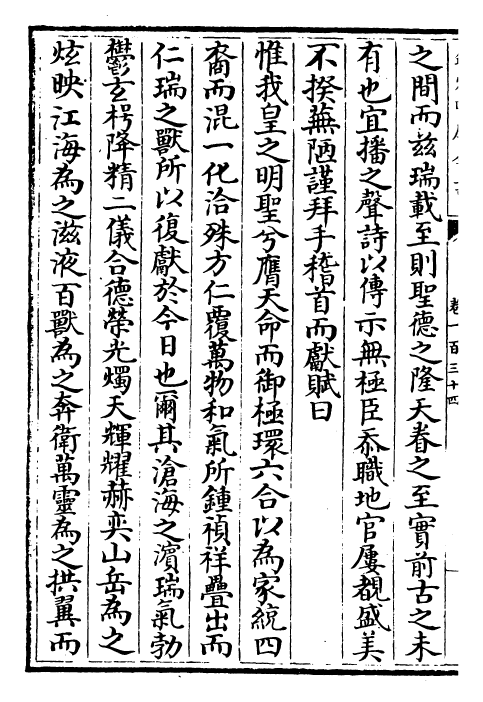 之間而茲瑞載至則聖德之隆天眷之至實前古之未
有也宜播之聲詩以傳示無極臣忝職地官屢覩盛美
不揆蕪陋謹拜手稽首而獻賦曰
惟我皇之明聖兮膺天命而御極環六合以為家統四
裔而混一化洽殊方仁覆萬物和氣所鍾禎祥疊出而
仁瑞之獸所以復獻於今日也爾其滄海之濱瑞氣勃
鬱玄枵降精二儀合德榮光燭天輝耀赫奕山岳為之
炫映江海為之滋液百獸為之奔衛萬靈為之拱翼而
卷一百三十四